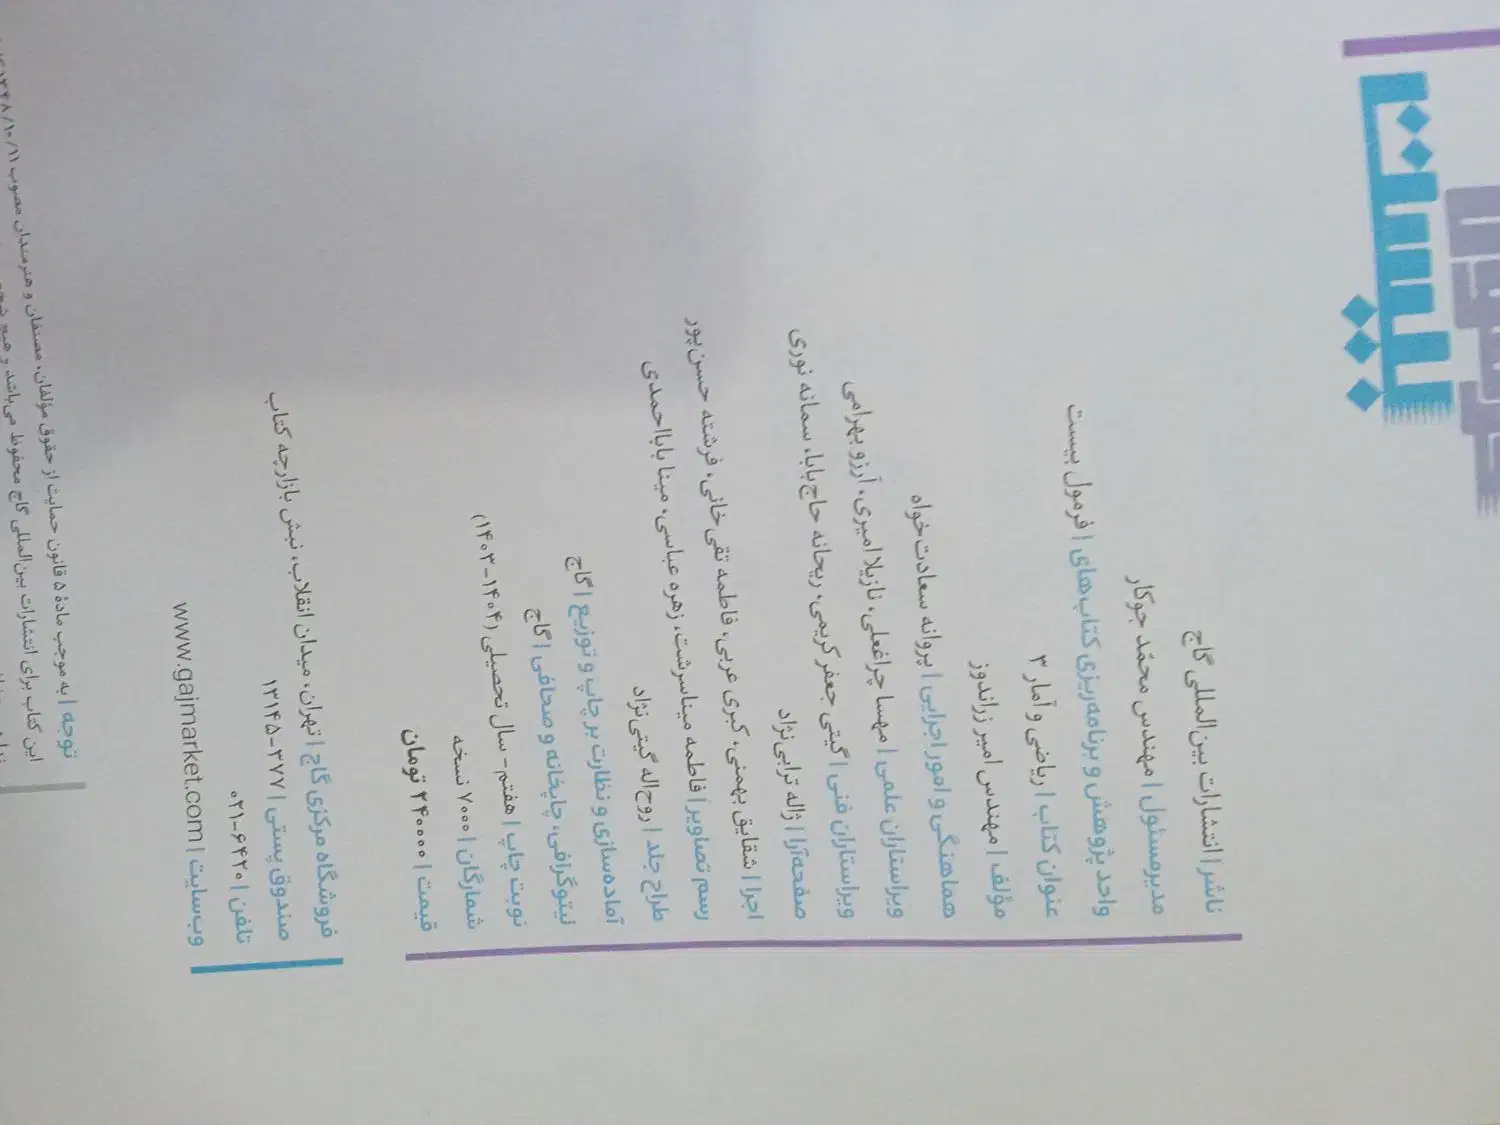 فرمول
بیست
ناشر | انتشارات بین‌المللی گاج
مدیرمسئول | مهندس محمّد جوکار
واحد پژوهش و برنامه‌ریزی کتاب‌های | فرمول بیست
عنوان کتاب | ریاضی و آمار ۳
مؤلف | مهندس امیر زراندوز
هماهنگی و امور اجرایی | پروانه سعادت‌خواه
ویراستاران علمی | مهسا چراغعلی، نازیلا امیری، آرزو بهرامی
ویراستاران فنی | گیتی جعفر کریمی، ریحانه حاج‌بابا، سمانه نوری
صفحه‌آرا | ژاله ترابی‌نژاد
اجرا | شقایق بهمنی، کبری عربی، فاطمه تقی خانی، فرشته حسن‌پور
رسم تصاویر | فاطمه میناسرشت، زهره عباسی، مینا بابااحمدی
طراح جلد | روح‌اله گیتی‌نژاد
آماده‌سازی و نظارت بر چاپ و توزیع | گاج
لیتوگرافی، چاپخانه و صحافی | گاج
نوبت چاپ | هفتم - سال تحصیلی (۱۴۰۴-۱۴۰۳)
شمارگان | ۷۰۰۰ نسخه
قیمت | ۲۴۰۰۰۰ تومان
فروشگاه مرکزی گاج | تهران، میدان انقلاب، نبش بازارچه کتاب
صندوق پستی | ۳۷۷-۱۳۱۴۵
تلفن | ۰۲۱-۶۴۲۰
وب‌سایت | www.gajmarket.com
توجه | به موجب مادهٔ ۵ قانون حمایت از حقوق مؤلفان، مصنفان و هنرمندان مصوب ۱۳۴۸/۱۰/۱۱
این کتاب برای انتشارات بین‌المللی گاج محفوظ می‌باشد و هیچ